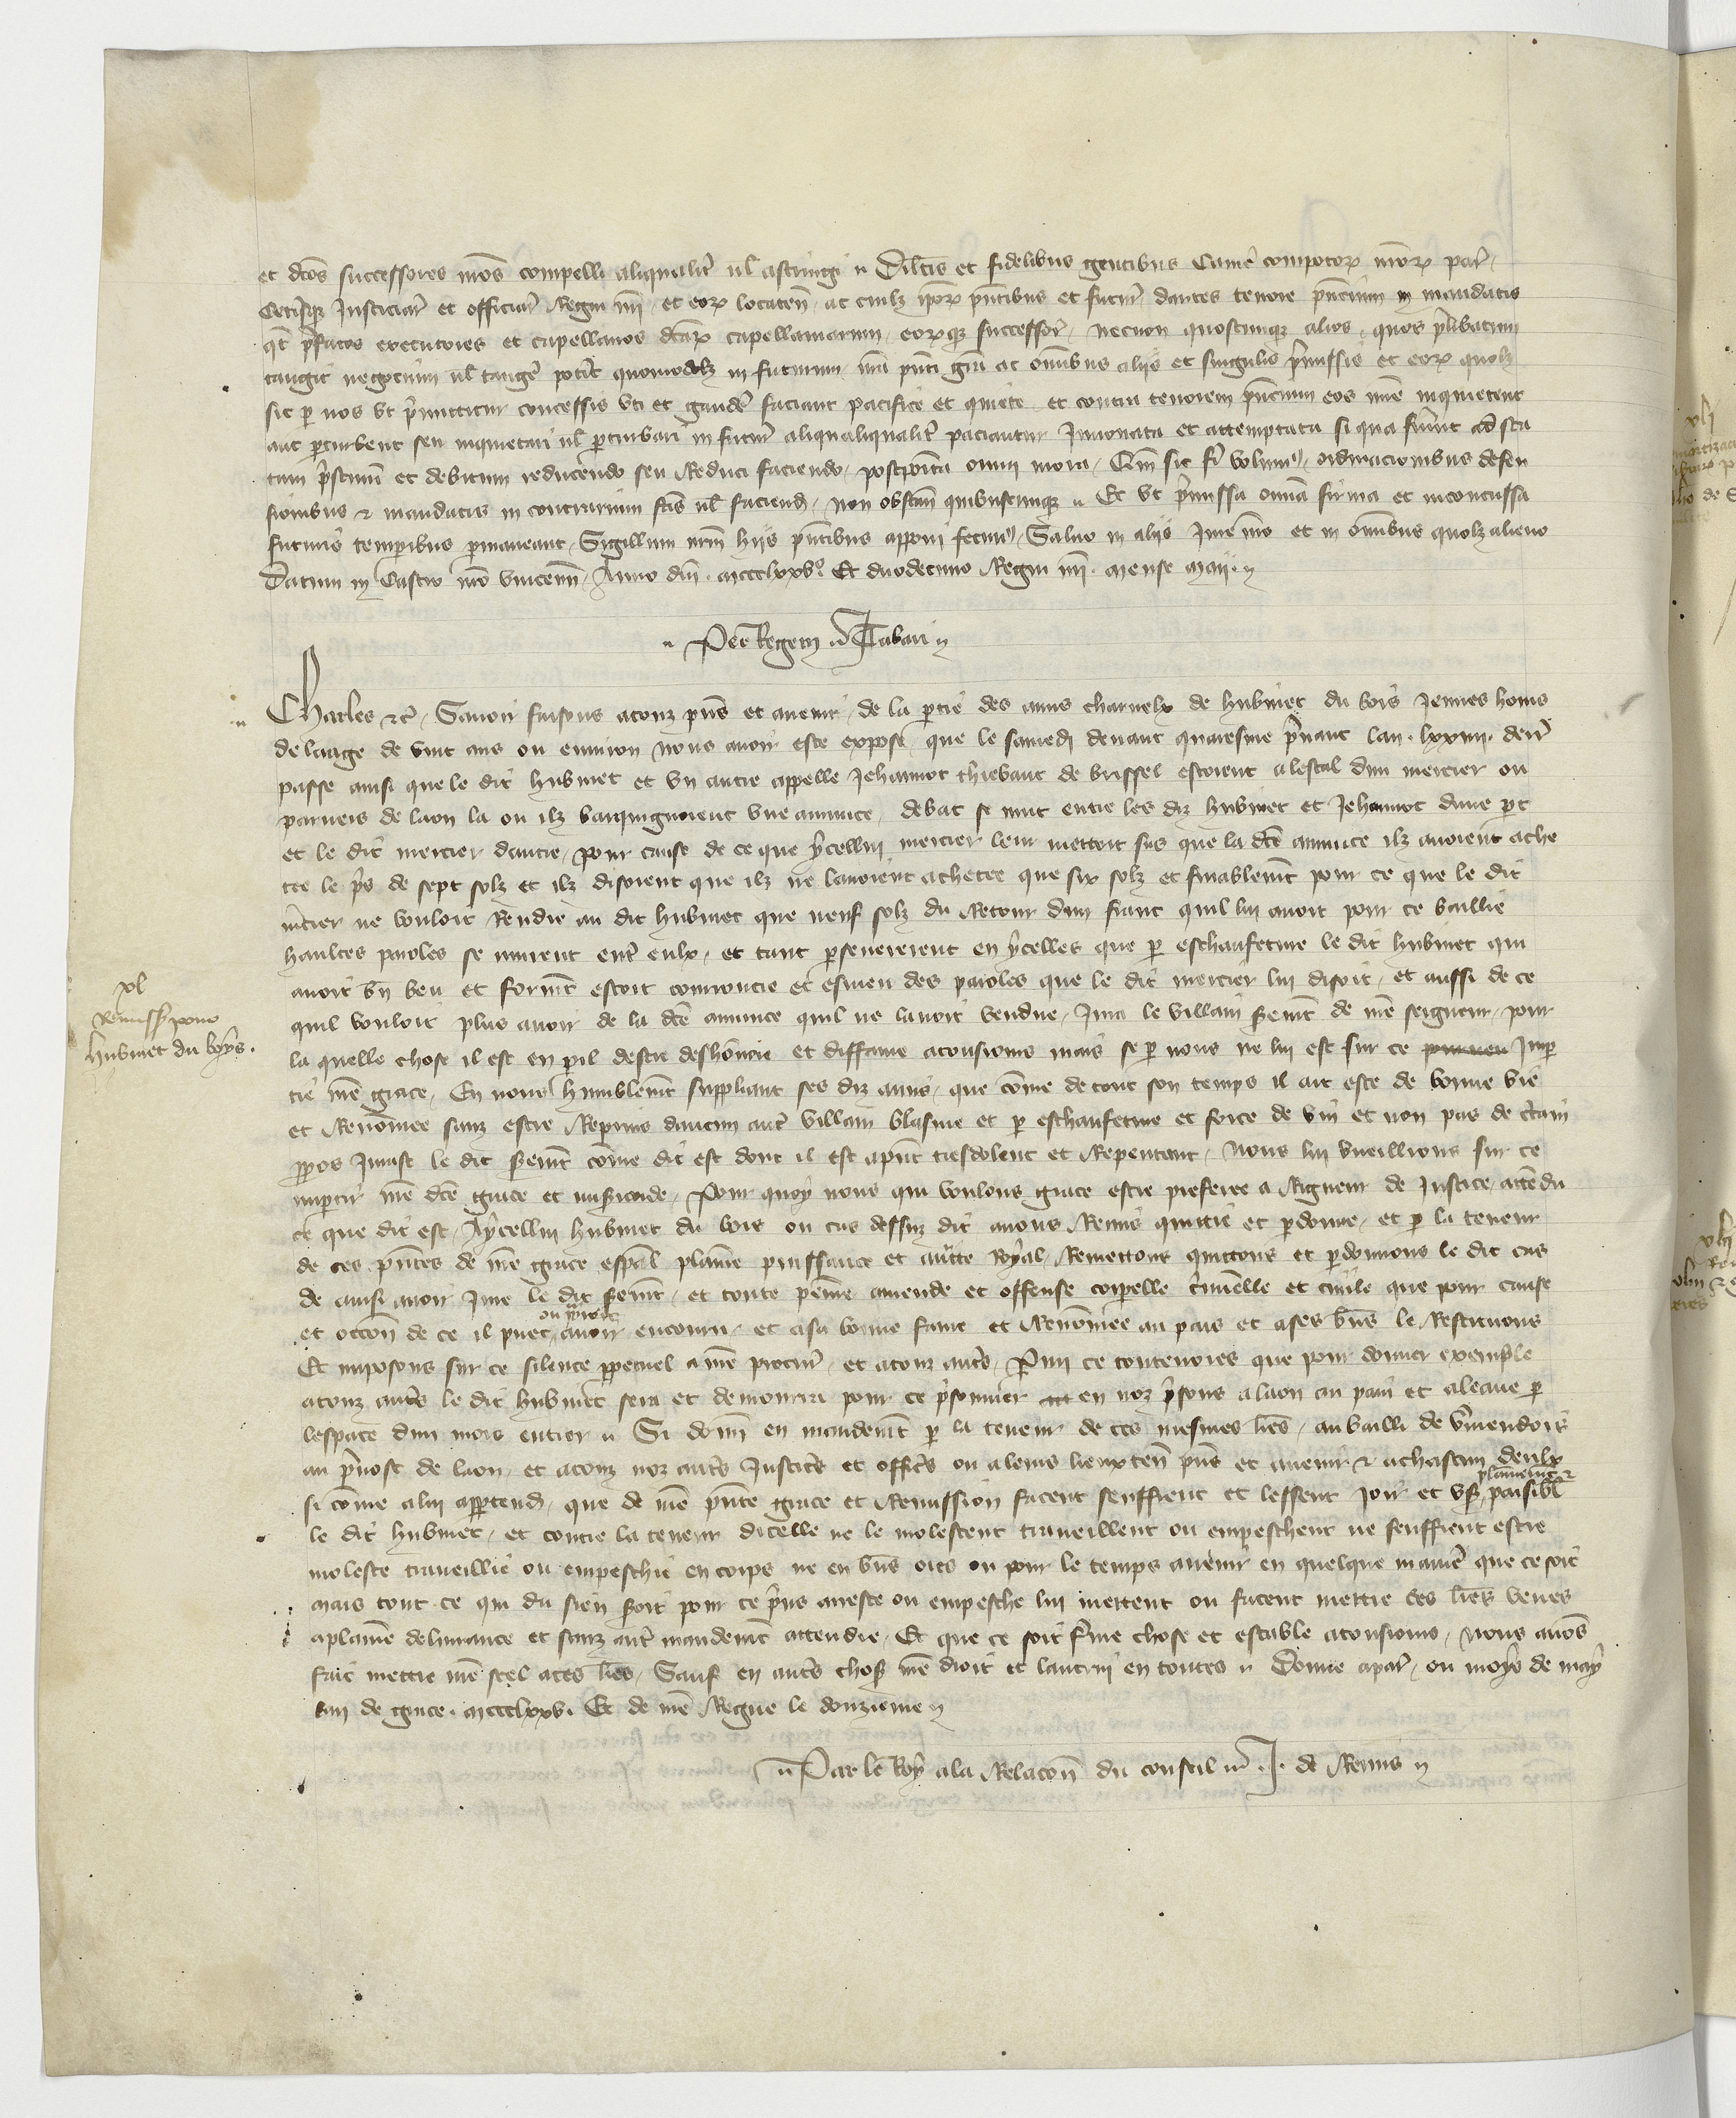 et dc̃os successores nr̃os compelli aliqualit̃ ul̃ astringi Dilc̃is et fidelibus gentibus Camẽ compotoꝝ nr̃oꝝ par̃
Cetisqꝫ Justiciar̃ et officiar̃ Regni nr̃i et eoꝝ locaten̄ ac cuilꝫ ip̃oꝝ pñtibus et futur̃ dantes tenore pñcium in mandatis
qt̃ p̃fatos executores et capellanos dc̃aꝝ capellaniarum eoꝝqꝫ successor̃ necnon quoscunqꝫ alios quos p̃libatum
tangit negocium ul̃ tanger̃ pot̃it quomodolꝫ in futurum nr̃a pñti gr̃a ac om̃ibus aliis et singulis p̃missis et eoꝝ quolꝫ
sic per nos ut p̃mittitur concessis uti et gauder̃ faciant pacifice et quiete et contra tenorem pñcium eos nũc inquietent
aut perturbent seu inquietari ul̃ perturbari in futur̃ aliqualiqualit̃ paciantur Innovata et attemptata si qua fũint ad sta
tum p̃stinũ et debitum reducendo seu Reduci faciendo postposita omni mora Cũ sic fi volumꝰ ordinacionibus defen
sionibus et mandatis in contrarium fc̃is ul̃ faciend̃ non obstan̄ quibuscunqꝫ Et ut p̃missa om̃ia firma et inconcussa
futuris temporibus permaneant Sigillum nr̃m hiis pñtibus apponi fecimꝰ Salvo in aliis Jure nr̃o et in om̃ibus quolꝫ alieno
Datum in Castro nr̃o vincenñ Anno dñi mccclxxvº Et duodecimo Regni nr̃i mense maii
Per Regem Tabari
Charles etc̃ Savoir faisons a touz pñs et avenir de la partie des amis charnelx de hubinet du bois Jeunes homs
de laage de vint ans ou environ nous avoir este expose que le samedi devant quaresme p̃nant lan lxxiiii derr̃
passe ainsi que le dit hubinet et un autre appelle Jehannot thiebaut de brissel estoient a lestal dun mercier ou
parueis de laon la ou ilz barquignoient une aumuce debat se mut entre les diz hubinet et Jehannot dune part
et le dit mercier dautre pour cause de ce que ycellui mercier leur mettoit sus que la dc̃e aumuce ilz avoient ache
tee le pris de sept solz et ilz disoient que ilz ne lavoient achetee que six solz et finablem̃t pour ce que le dit
m̃cier ne vouloit Rendre au dit hubinet que neuf solz du Retour dun franc quil lui avoit pour ce baillie
haultes paroles se murent ent̃ eulx et tant perseverent en ycelles que par eschaufeture le dit hubinet qui
avoit bñ beu et form̃t estoit courroucie et esmeu des paroles que le dit mercier lui disoit et aussi de ce
quil vouloit plus avoir de la dc̃e aumuce quil ne lavoit vendue Jura le villain serem̃t de nr̃e seigneur pour
la quelle chose il est en peril destre deshonnore et diffame a tousiours mais se par nous ne lui est sur ce Imper
tie nr̃e grace En nous humblem̃t suppliant ses diz amis que com̃e de tout son temps il ait este de bonne vie
et Renommee sanz estre Repris daucun aut̃ villain blasme et par eschaufeture et force de vin et non pas de c̃tain
propos Jurast le dit serem̃t com̃e dit est dont il est a pñt tresdolent et Repentant Nous lui vueillions sur ce
impertir nr̃e dc̃e grace et misericorde Pour quoy nous qui voulons grace estre preferee a Rigueur de Justice attendu
ce que dit est A ycellui hubinet du bois ou cas dessuz dit avons Remis quittie et perdonne et par la teneur
de ces pñtes de nr̃e grace esp̃al plain̄e puissance et auct̃e Royal Remettons quittons et perdonnons le dit cas
de ainsi avoir Jure le dit serem̃t et toute peine amende et offense corporelle criminelle et civile que pour cause
et occon̄ de ce il puet ou pourroit avoir encouru et a sa bonne fame et Renommee au pais et a ses bñs le Restituons
Et imposons sur ce silence perpetuel a nr̃e procur̃ et a touz aut̃s Parmi ce toutevoies que pour donner exemple
a touz aut̃s le dit hubinet sera et demourra pour ce p̃sonnier en noz p̃sons a laon au pain et a leaue par
lespace dun mois entier Si donnons en mandem̃t par la teneur de ces mesmes lr̃es au bailli de Ṽmendois
au p̃vost de laon et a touz noz aut̃s Justic̃s et offic̃s ou a leurs lieuxten̄ pñs et avenir et a chascun deulx
si com̃e a lui appartend̃ que de nr̃e pñte grace et Remission facent seuffrent et lessent joir et user plainem̃t et paisibl̃
le dit hubinet et contre la teneur dicelle ne le molestent traveillent ou empeschent ne seuffrent estre
moleste traveillie ou empeschie en corps ne en bñs ores ou pour le temps avenir en quelque maniẽ que ce soit
mais tout ce qui du sien seroit pour ce p̃ns arreste ou empesche lui mettent ou facent mettre ces lr̃es veues
a plain̄e delivrance et sanz aut̃ mandem̃t attendre Et que ce soit ferme chose et estable a tousiours Nous avons
fait mettre nr̃e scel a ces lr̃es Sauf en aut̃s choses nr̃e droit et lautrui en toutes Donne a par̃ ou moys de may
lan de grace mccclxxv Et de nr̃e Regne le douzieme
Par le Roy a la Relacon̄ du conseil J. de Reims
xl
Remissio pro
hubinet du boys